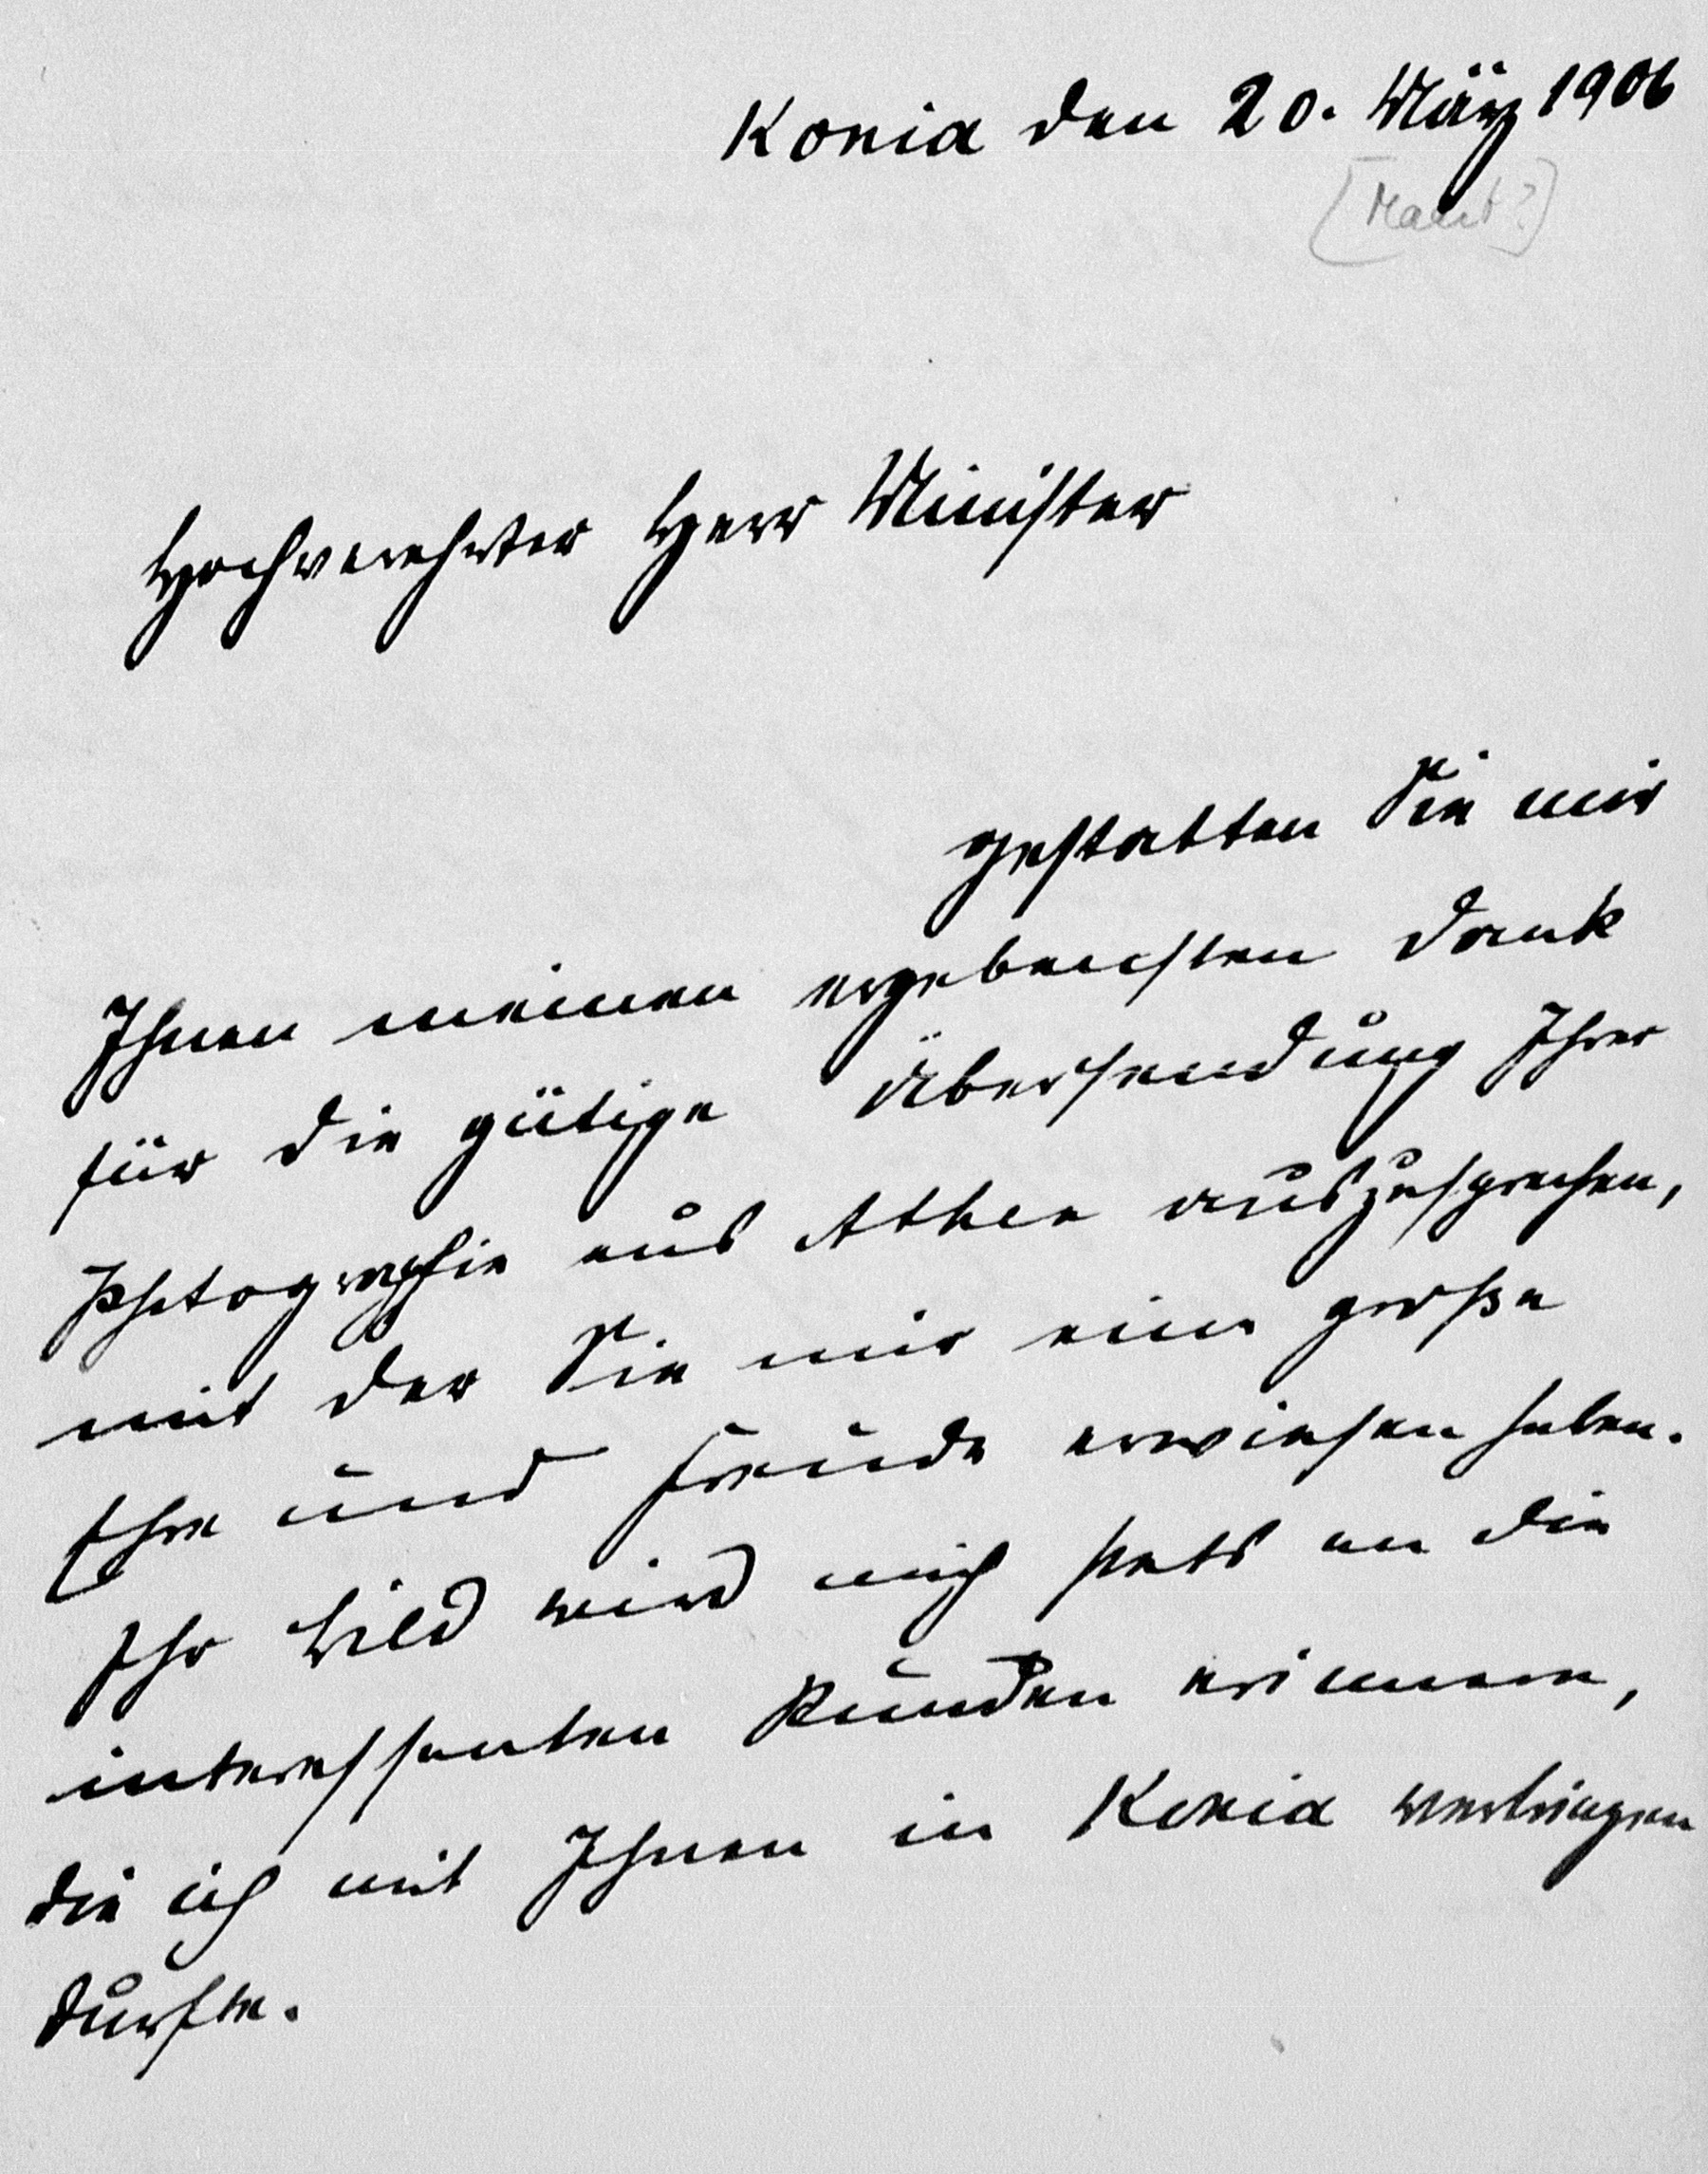 Konia den 20. März 1906
[Maart?]
Hochverehrter Herr Minister
gestatten Sie mir
Ihnen meinen ergebensten Dank
für die gütige Übersendung Ihrer
Photographie aus Athen auszusprechen,
mit der Sie mir eine große
Ehre und Freude erwiesen haben.
Ihr Bild wird mich stets an die
interessanten Stunden erinnern,
die ich mit Ihnen in Konia verbringen
durfte.